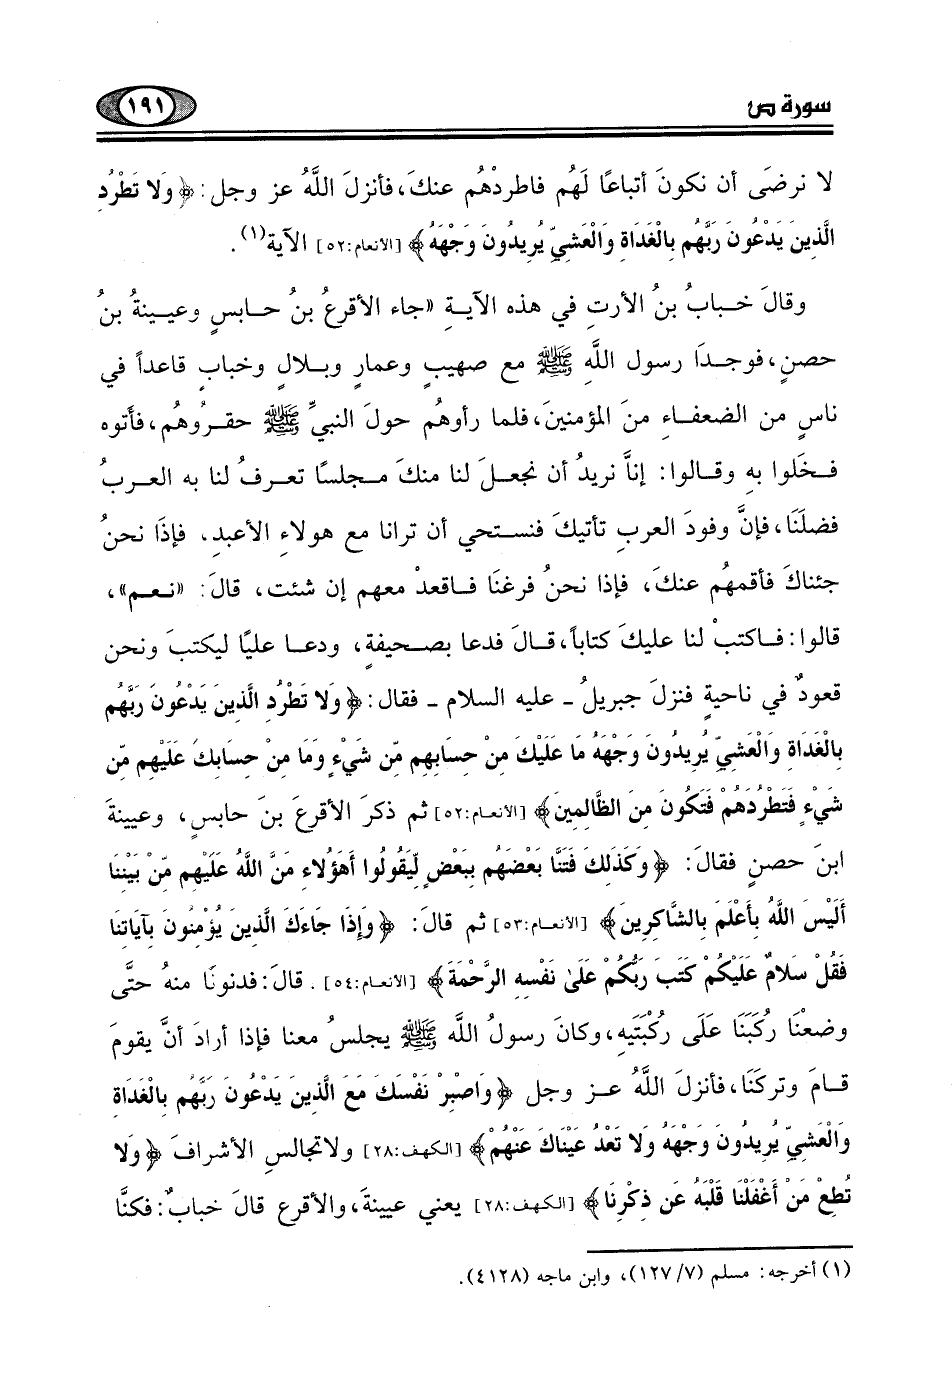 سورة ص
١٩١
لا نرضَى أن نكونَ أتباعًا لَهُم فاطردْهُم عنكَ، فأنزلَ اللَّهُ عز وجل: ﴿وَلا تَطْرُدِ
الَّذِينَ يَدْعُونَ رَبَّهُم بِالْغَدَاةِ وَالْعَشِيِّ يُرِيدُونَ وَجْهَهُ﴾ [الأنعام:٥٢] الآية(١).
وقالَ خبابُ بنُ الأرتِ في هذه الآيةِ «جاء الأقرعُ بنُ حابسٍ وعيينةُ بنُ
حصنٍ، فوجدَا رسول اللَّهِ ﷺ مع صهيبٍ وعمارٍ وبلالٍ وخبابٍ قاعداً في
ناسٍ من الضعفاءِ منَ المؤمنين، فلما رأوهُم حولَ النبيِّ ﷺ حقروهُم، فأتوه
فخَلَوا به وقالوا: إنَّا نريدُ أن نجعلَ لنا منكَ مجلسًا تعرفُ لنا به العربُ
فضلَنَا، فإنَّ وفودَ العربِ تأتيكَ فنستحي أن ترانا مع هولاءِ الأعبدِ، فإذَا نحنُ
جئناكَ فأقمهُم عنكَ، فإذا نحنُ فرغنَا فاقعدْ معهم إن شئت، قالَ: «نعم»،
قالوا: فاكتبْ لنا عليكَ كتاباً، قالَ فدعا بصحيفةٍ، ودعا عليًا ليكتبَ ونحن
قعودٌ في ناحيةٍ فنزلَ جبريلُ ـ عليه السلام ـ فقال: ﴿وَلا تَطْرُدِ الَّذِينَ يَدْعُونَ رَبَّهُم
بِالْغَدَاةِ وَالْعَشِيِّ يُرِيدُونَ وَجْهَهُ مَا عَلَيْكَ مِنْ حِسَابِهِم مِّن شَيْءٍ وَمَا مِنْ حِسَابِكَ عَلَيْهِم مِّن
شَيْءٍ فَتَطْرُدَهُمْ فَتَكُونَ مِنَ الظَّالِمِينَ﴾ [الأنعام:٥٢] ثم ذكرَ الأقرعَ بنَ حابسٍ، وعيينةَ
ابنَ حصنٍ فقالَ: ﴿وَكَذَلِكَ فَتَنَّا بَعْضَهُم بِبَعْضٍ لِّيَقُولُوا أَهَؤُلاءِ مَنَّ اللَّهُ عَلَيْهِم مِّنْ بَيْنِنَا
أَلَيْسَ اللَّهُ بِأَعْلَمَ بِالشَّاكِرِينَ﴾ [الأنعام:٥٣] ثم قالَ: ﴿وَإِذَا جَاءَكَ الَّذِينَ يُؤْمِنُونَ بِآيَاتِنَا
فَقُلْ سَلامٌ عَلَيْكُمْ كَتَبَ رَبُّكُمْ عَلَىٰ نَفْسِهِ الرَّحْمَةَ﴾ [الأنعام:٥٤]. قالَ: فدنونَا منهُ حتَّى
وضعْنَا رُكَبَنَا عَلَى رُكْبَتَيه، وكانَ رسولُ اللَّه ﷺ يجلسُ معنا فإذا أرادَ أنْ يقومَ
قامَ وتركَنَا، فأنزلَ اللَّهُ عز وجل ﴿وَاصْبِرْ نَفْسَكَ مَعَ الَّذِينَ يَدْعُونَ رَبَّهُم بِالْغَدَاةِ
وَالْعَشِيِّ يُرِيدُونَ وَجْهَهُ وَلا تَعْدُ عَيْنَاكَ عَنْهُمْ﴾ [الكهف:٢٨] ولاتجالسِ الأشرافَ ﴿وَلا
تُطِعْ مَنْ أَغْفَلْنَا قَلْبَهُ عَن ذِكْرِنَا﴾ [الكهف:٢٨] يعني عيينةَ، والأقرع قالَ خبابٌ: فكنَّا
(١) أخرجه: مسلم (٧/ ١٢٧)، وابن ماجه (٤١٢٨).